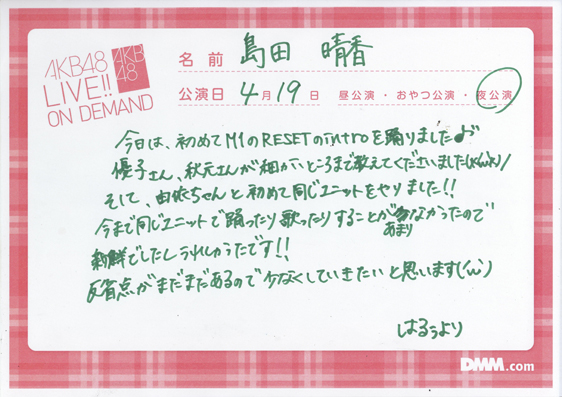 AKB48
LIVE!!
ON DEMAND
AKB
48
名前 島田 晴香
公演日 4月19日 昼公演・おやつ公演・夜公演
今日は、初めてM1のRESETのintroを踊りました♪
優子さん、秋元さんが細かいところまで教えてくださいました
そして、由依ちゃんと初めて同じユニットをやりました!!
今まで同じユニットで踊ったり歌ったりすることがあまりなかったので
新鮮でしたしうれしかったです!!
反省点がまだまだあるので少なくしていきたいと思います('ω')
はるぅより
DMM.com